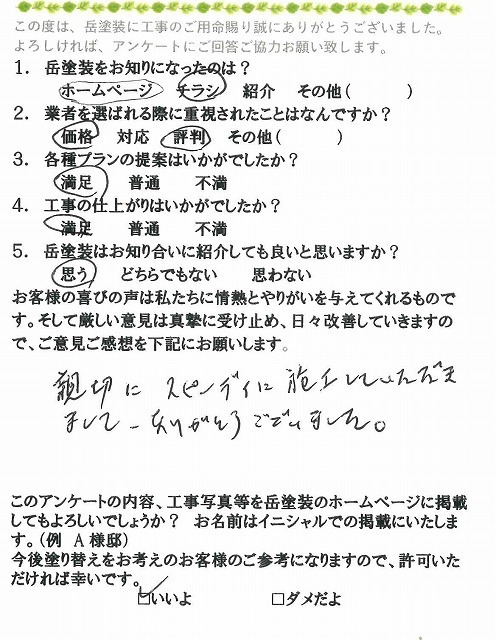 この度は、岳塗装に工事のご用命賜り誠にありがとうございました。
よろしければ、アンケートにご回答ご協力お願い致します。
1. 岳塗装をお知りになったのは？
ホームページ チラシ 紹介 その他（ ）
2. 業者を選ばれる際に重視されたことはなんですか？
価格 対応 評判 その他（ ）
3. 各種プランの提案はいかがでしたか？
満足 普通 不満
4. 工事の仕上がりはいかがでしたか？
満足 普通 不満
5. 岳塗装はお知り合いに紹介しても良いと思いますか？
思う どちらでもない 思わない
お客様の喜びの声は私たちに情熱とやりがいを与えてくれるもので
す。そして厳しい意見は真摯に受け止め、日々改善していきますの
で、ご意見ご感想を下記にお願いします。
親切に スピーディに 施工していただき
まして ありがとうございました。
このアンケートの内容、工事写真等を岳塗装のホームページに掲載
してもよろしいでしょうか？ お名前はイニシャルでの掲載にいたしま
す。（例 A 様邸）
今後塗り替えをお考えのお客様のご参考になりますので、許可いた
だければ幸いです。
☑いいよ □ダメだよ